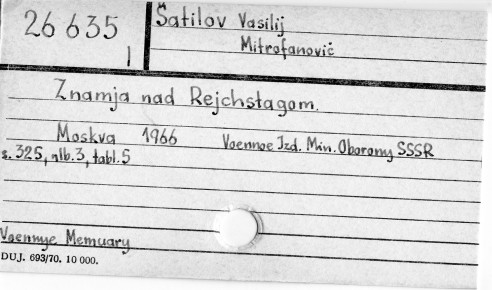 26 635
I
Šatilov Vasilij
Mitrofanovič
Znamja nad Rejchstagom.
Moskva 1966 Voennoe Izd. Min. Oborony SSSR
s. 325, alb. 3, tabl. 5
Voennye Memuary
DUJ. 693/70. 10 000.